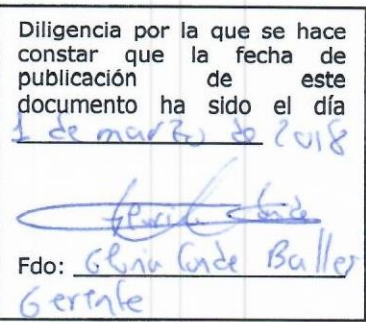 Diligencia por la que se hace
constar que la fecha de
publicación de este
documento ha sido el día
1 de marzo de 2018
Gloria Conde
Fdo: Gloria Conde Balles
Gerente